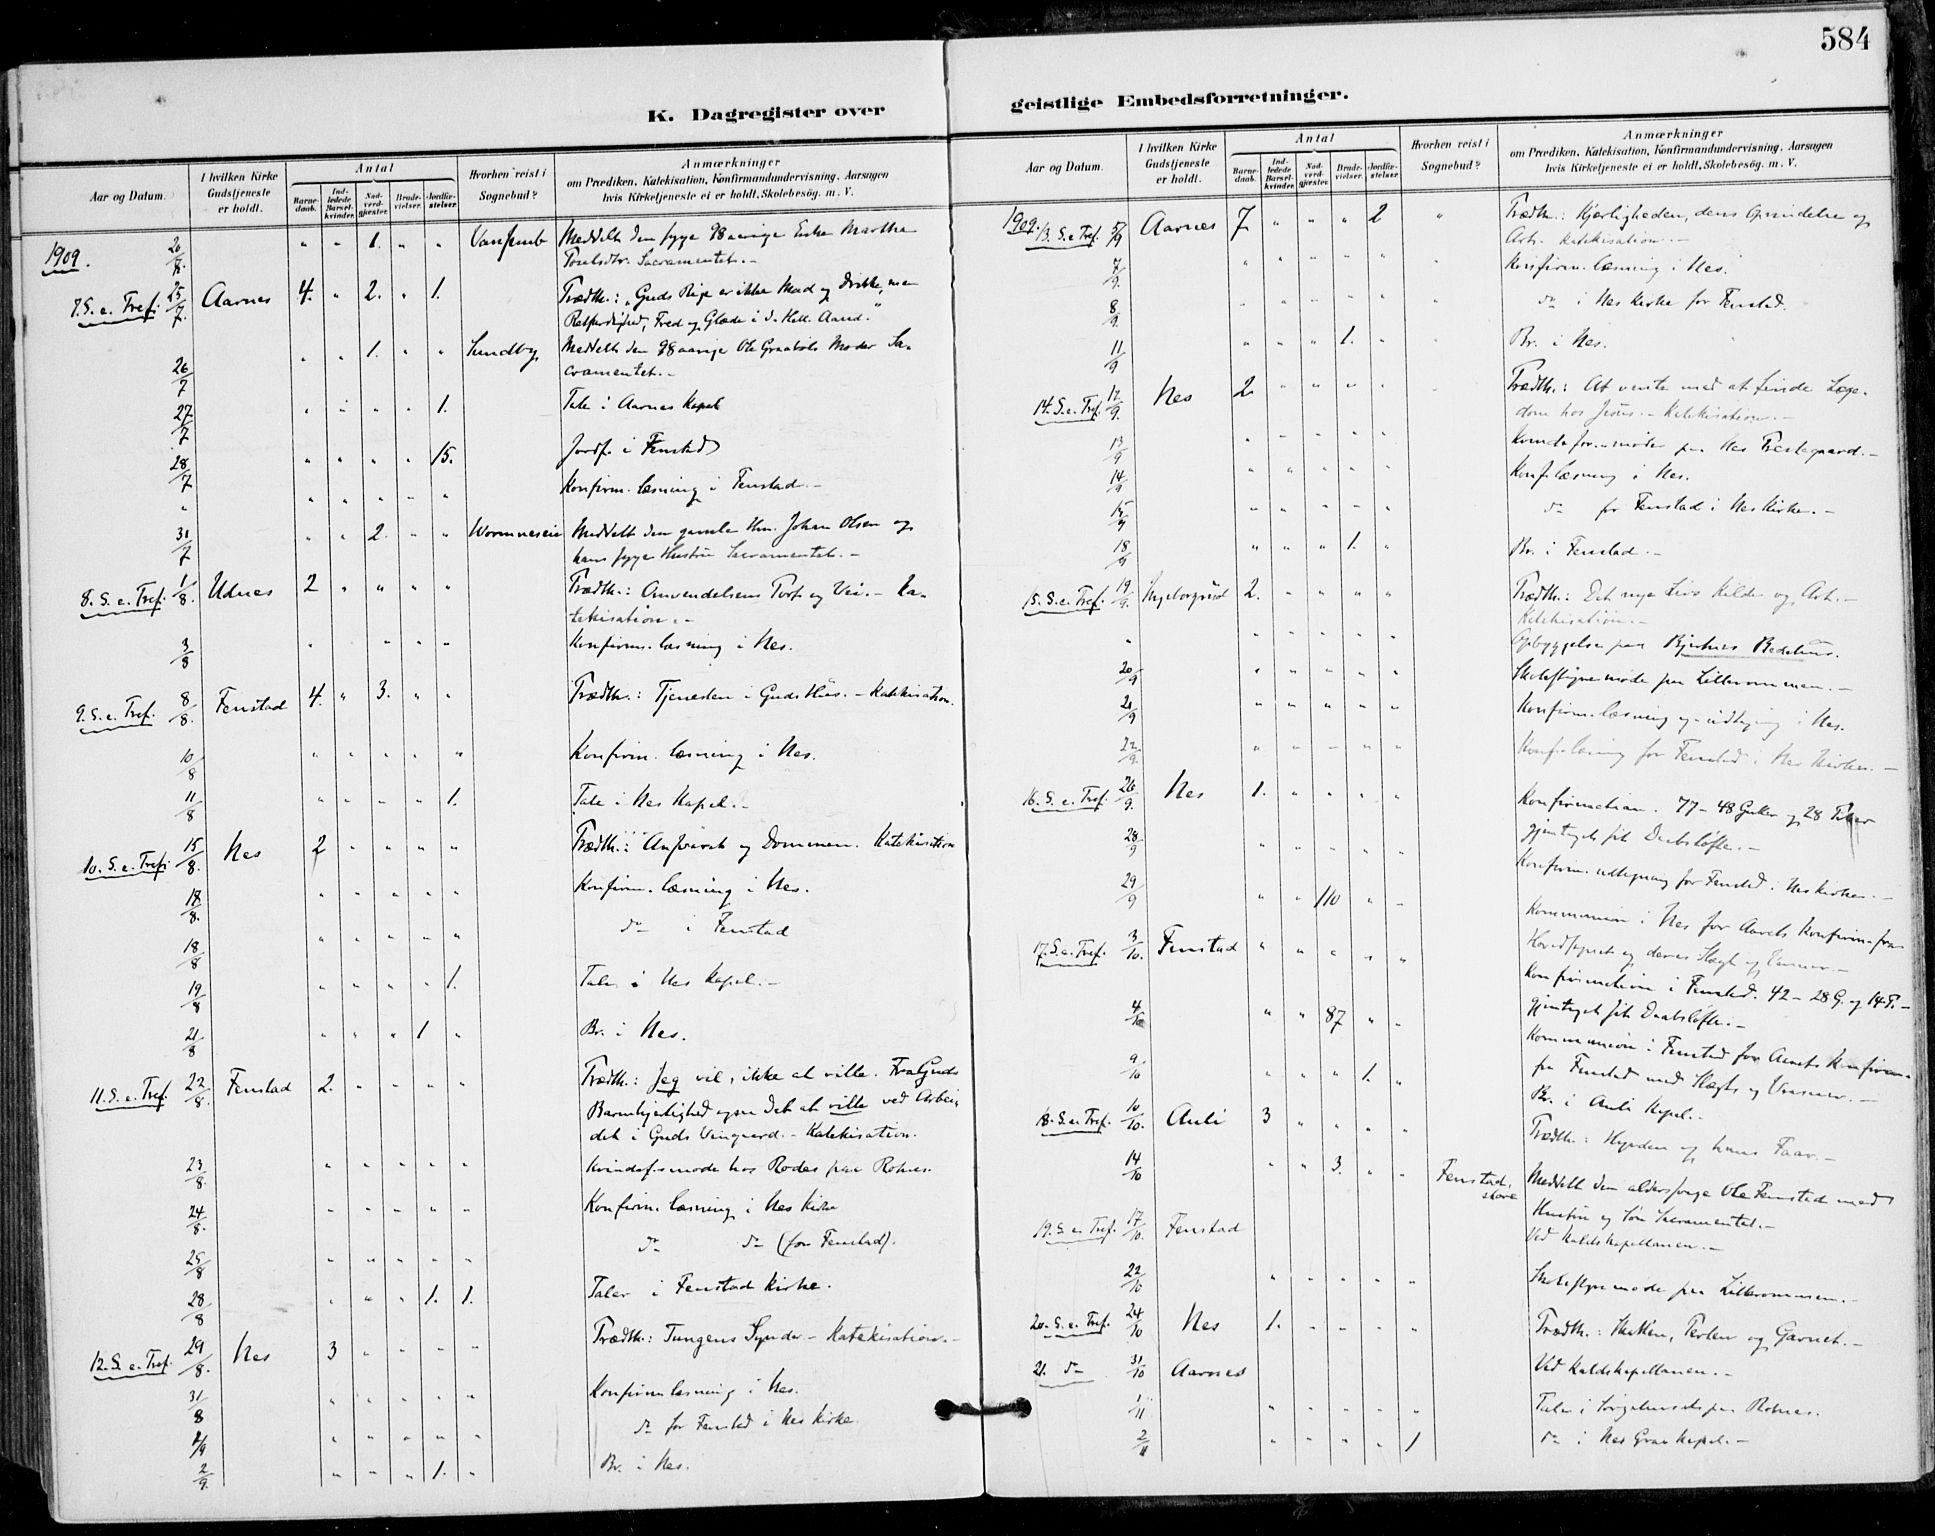 584
K. Dagregister over
geistlige Embedsforretninger.
Aar og Datum. I hvilken Kirke Gudstjeneste er holdt. Antal Barnedaab. Indledede Barselkvinder. Nadverdgjester. Brudevielser. Jordfæstelser. Hvorhen reist i Sognebud? Anmærkninger om Prædiken, Katekisation, Konfirmandundervisning, Aarsagen hvis Kirketjeneste ei er holdt, Skolebesög. m. V.
1909. 20/7. " " 1. " " Meddelt den syge 98 aarige Enke Martha
Sacramentet. -
7. S. e. Tref. 25/7. Aarnes 4. " 2. " 1. Prædik.: "Guds Rige er ikke Mad og Drikke, men
Retfærdighed, Fred og Glæde i d. Hell. Aand."
26/7 " " 1. " " Sundby Meddelt den 98 aarige Ole Moder Sa-
cramentet. -
27/7 " " " " 1. Tale i Aarnes Kapel
28/7 " " " " 15. Jordf. i Fenstad
" " " " " " Konfirm. læsning i Fenstad. -
31/7 " " 2. " " Meddelt den gamle Johan Olsen og
hans syge Hustru Sacramentet. -
8. S. e. Tref. 1/8. Udnes 2 " " " " Prædik.: Omvendelsens Port og Vei. - Ka-
tekisation. -
3/8 " " " " Konfirm. læsning i Nes.
9. S. e. Tref. 8/8. Fenstad 4. " 3. " " Prædik.: Tjenesten i Guds Hus. - Katekisation.
10/8 " " " " " Konfirm. læsning i Nes.
11/8 " " " " 1. Tale i Nes Kapel. -
10. S. e. Tref. 15/8. Nes 2 " " " " Prædik.: Ansvaret og Dommen. Katekisation
18/8. " " " " " Konfirm. læsning i Nes.
18/8 " " " " " do i Fenstad
19/8 " " " " 1. Tale i Nes Kapel. -
21/8 " " " 1 " Br. i Nes.
11. S. e. Tref. 22/8. Fenstad 2. " " " " Prædik.: Jeg vil, ikke at ville. Fra Guds
Barmhjertighed ogsaa det at ville ved Arbei-
det i Guds Vingaard. - Katekisation.
23/8. " " " " " Kvindef.møde hos Rodes paa Rohnes.
24/8. " " " " " Konfirm. læsning i Nes Kirke
25/8 " " " " " do do (for Fenstad).
28/8 " " " 1. 1. Taler i Fenstad Kirke.
12. S. e. Tref. 29/8. Nes 3 " " " " Prædik.: Tungens Synder - Katekisation. -
31/8 " " " " " Konfirm læsning i Nes.
1/9 " " " " " do for Fenstad i Nes Kirke
2/9. " " " 1. " Br. i Nes.
Aar og Datum. I hvilken Kirke Gudstjeneste er holdt. Antal Barnedaab. Indledede Barselkvinder. Nadverdgjester. Brudevielser. Jordfæstelser. Hvorhen reist i Sognebud? Anmærkninger om Prædiken, Katekisation, Konfirmandundervisning, Aarsagen hvis Kirketjeneste ei er holdt, Skolebesög. m. V.
1909. 13. S. e. Tref. 5/9 Aarnes 7. " " " 2 " Prædik.: Kjærligheden, dens Oprindelse og
Art. Katekisation. -
7/9. " " " " " " Konfirm. læsning i Nes.
8/9. " " " " " " do i Nes Kirke for Fenstad.
11/9 " " " 1. " " Br. i Nes.
14. S. e. Tref. 12/9. Nes 2. " " " " Prædik.: At vente med at finde Læge-
dom hos Jesus. - Katekisation. -
13/9 " " " " " Kvindefor. møte paa Nes Prestegaard. -
14/9 " " " " " Konf. læsning i Nes.
15/9 " " " " " do for Fenstad i Nes Kirke. -
18/9 " " " 1. " Br. i Fenstad. -
15. S. e. Tref. 19/9. Ingeborgrud 2. " " " " Prædik.: Det nye Livs Kilde og Art. -
Katekisation. -
" " " " " " Opbyggelse paa Bedehus.
20/9 " " " " " Skolestyremøde paa Lillerommen. -
21/9 " " " " " Konfirm. læsning og udtagning i Nes.
22/9. " " " " " Konf. læsning for Fenstad i Nes Kirke. -
16. S. e. Tref. 26/9. Nes 1. " " " " Konfirmation. 77 - 48 Gutter og 28 Piker
gjentaget sit Daabsløfte. -
28/9 " " " " " Konfirm. udtagning for Fenstad i Nes Kirke. -
29/9 " " 110 " " Kommunion i Nes for Aarets Konfirm. fra
Hovedsognet og deres Slægt og Venner. -
17. S. e. Tref. 3/10. Fenstad " " " " " Konfirmation i Fenstad. 42 - 28 G. og 14 P. -
gjentaget sit Daabsløfte. -
4/10 " " 87 " " Kommunion i Fenstad for Aarets Konfirm.
fra Fenstad med Slægt og Venner. -
9/10 " " " 1. " Br. i Auli Kapel. -
18. S. e. Tref. 10/10. Auli 3 " " " " Prædik.: Hyrden og hans Faar. -
14/10 " " 3. " " Fenstad, store Meddelt den alderssvage Ole Fenstad med
Hustru og Søn Sacramentet. -
19. S. e. Tref. 17/10. Fenstad Ved Kaldskapellanen. -
22/10 " " " " " Skolestyremøde paa Lillerommen. -
20. S. e. Tref. 24/10 Nes 1. " " " " Prædik.: Skatten, Perlen og Garnet. -
21. do 31/10 Aarnes Ved Kaldskapellanen. -
1/11 " " " " " Tale i Sørgehuset paa Rohnes.
2/11 " " " " 1 do i Nes Grav Kapel. -